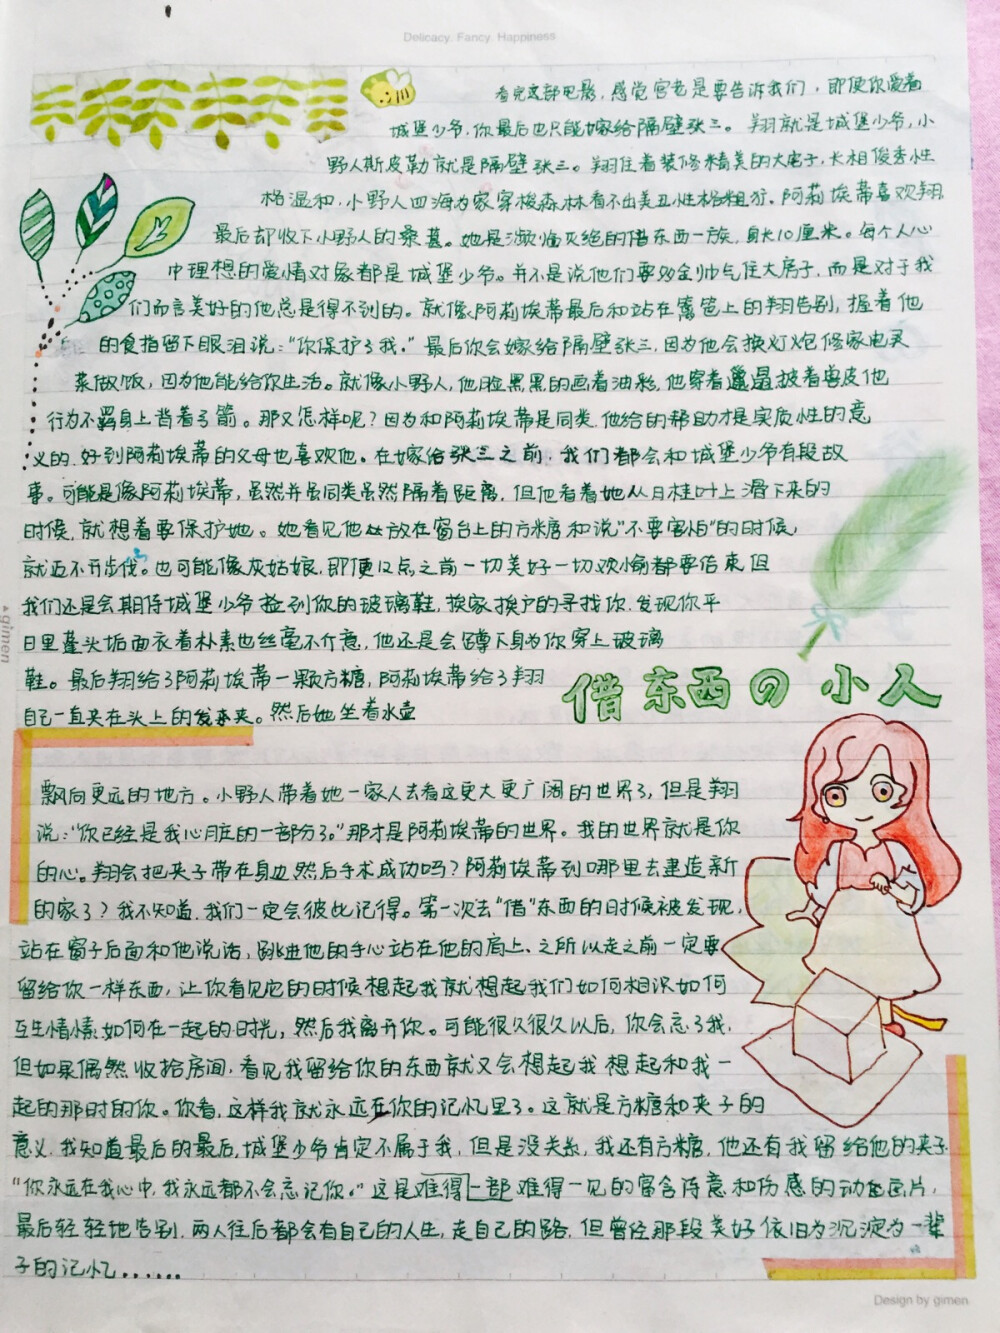 Delicacy. Fancy. Happiness
看完这部电影，感觉宫老是要告诉我们，即便你爱着
城堡少爷，你最后也只能嫁给隔壁张三。翔就是城堡少爷，小
野人斯皮勒就是隔壁张三。翔住着装修精美的大房子，长相俊秀性
格温和，小野人四海为家穿梭森林看不出美丑性格粗犷。阿莉埃蒂喜欢翔
最后却收下小野人的桑葚。她是濒临灭绝的借东西一族，身长10厘米。每个人心
中理想的爱情对象都是城堡少爷。并不是说他们要多金帅气住大房子，而是对于我
们而言美好的他总是得不到的。就像阿莉埃蒂最后和站在篱笆上的翔告别，握着他
的食指留下眼泪说："你保护了我。"最后你会嫁给隔壁张三，因为他会换灯炮修家电买
菜做饭，因为他能给你生活。就像小野人，他脸黑黑的画着油彩，他穿着邋遢披着兽皮他
行为不羁身上背着弓箭。那又怎样呢？因为和阿莉埃蒂是同类，他给的帮助才是实质性的意
义的，好到阿莉埃蒂的父母也喜欢他。在嫁给张三之前，我们都会和城堡少爷有段故
事。可能是像阿莉埃蒂，虽然并虽同类虽然隔着距离，但他看着她从月桂叶上滑下来的
时候，就想着要保护她。她看见他放在窗台上的方糖和说"不要害怕"的时候，
就迈不开步伐。也可能像灰姑娘，即便12点之前一切美好一切欢愉都要结束但
我们还是会期待城堡少爷捡到你的玻璃鞋，挨家挨户的寻找你，发现你平
日里蓬头垢面衣着朴素也丝毫不介意，他还是会蹲下身为你穿上玻璃
鞋。最后翔给了阿莉埃蒂一颗方糖，阿莉埃蒂给了翔
自己一直夹在头上的发夹。然后她坐着水壶
借东西の小人
飘向更远的地方。小野人带着她一家人去看这更大更广阔的世界了，但是翔
说："你已经是我心脏的一部分了。"那才是阿莉埃蒂的世界。我的世界就是你
的心。翔会把夹子带在身边然后手术成功吗？阿莉埃蒂到哪里去建造新
的家了？我不知道，我们一定会彼此记得。第一次去"借"东西的时候被发现，
站在窗子后面和他说话，跳进他的手心站在他的肩上、之所以走之前一定要
留给你一样东西，让你看见它的时候想起我就想起我们如何相识如何
互生情愫如何在一起的时光，然后我离开你。可能很久很久以后，你会忘了我，
但如果偶然收拾房间，看见我留给你的东西就又会想起我想起和我一
起的那时的你。你看，这样我就永远在你的记忆里了。这就是方糖和夹子的
意义，我知道最后的最后，城堡少爷肯定不属于我，但是没关系，我还有方糖，他还有我留给他的夹子
"你永远在我心中，我永远都不会忘记你。"这是难得一部难得一见的富含诗意和伤感的动画片，
最后轻轻地告别，两人往后都会有自己的人生，走自己的路，但曾经那段美好依旧为沉淀为一辈
子的记忆……
gimen
Design by gimen